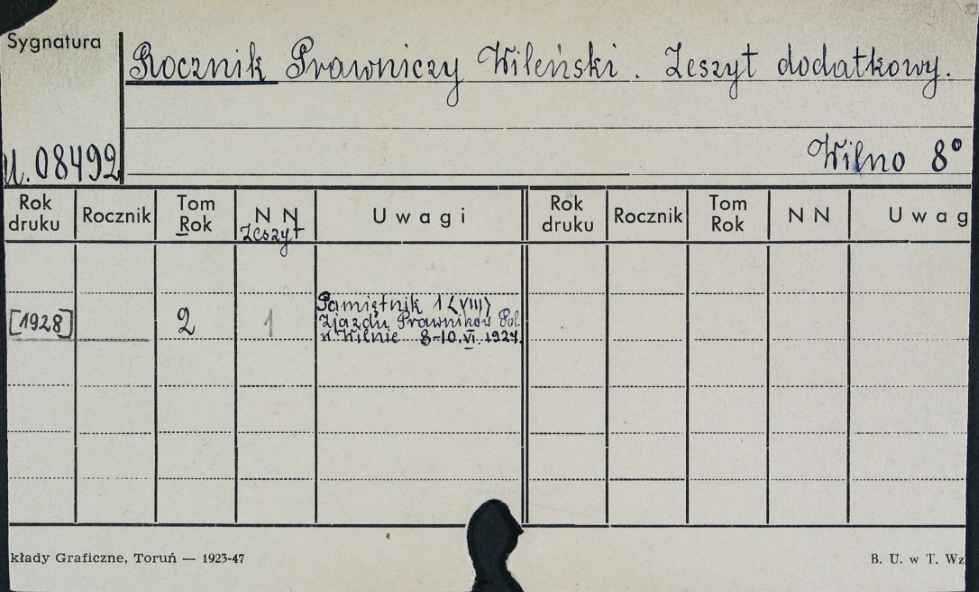 Sygnatura
Rocznik Prawniczy Wileński. Zeszyt dodatkowy.
U.08492
Wilno 8°
Rok druku Rocznik Tom Rok N N Zeszyt Uwagi Rok druku Rocznik Tom Rok N N Uwag
[1928] 2 1 Pamiętnik 1 <VIII>
Zjazdu Prawników Pol
w Wilnie 8-10.VI.1924.
kłady Graficzne, Toruń — 1923-47
B. U. w T. Wz